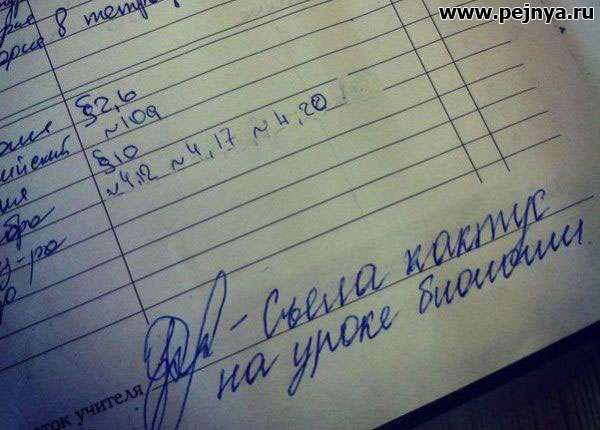 www.pejnya.ru
рия 8 тетр
§2,6
ийский №109
ия §10
бра №4,12 №4,17 №4,20
у-ра
- Съела кактус
на уроке биологии
ток учителя